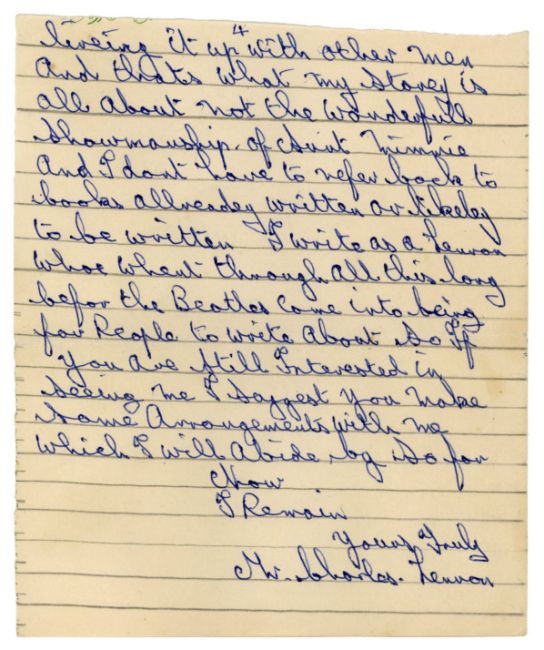 4
liveing it up with other men
And thats what my storey is
all About not the Wonderfull
Showmanship. of Aunt Mimmie
And I dont have to refer back to
books allreadey written or likeley
to be written I write as a Lennon
Whoe Whent through All this long
befor the Beatles Come into being
for People to write About So If
you Are Still Interested in
Seeing me I Suggest You Make
Some Arrangements With me
Which I will Abide by So for
Now
I Remain
Yours Truly
Mr. Charles. Lennon